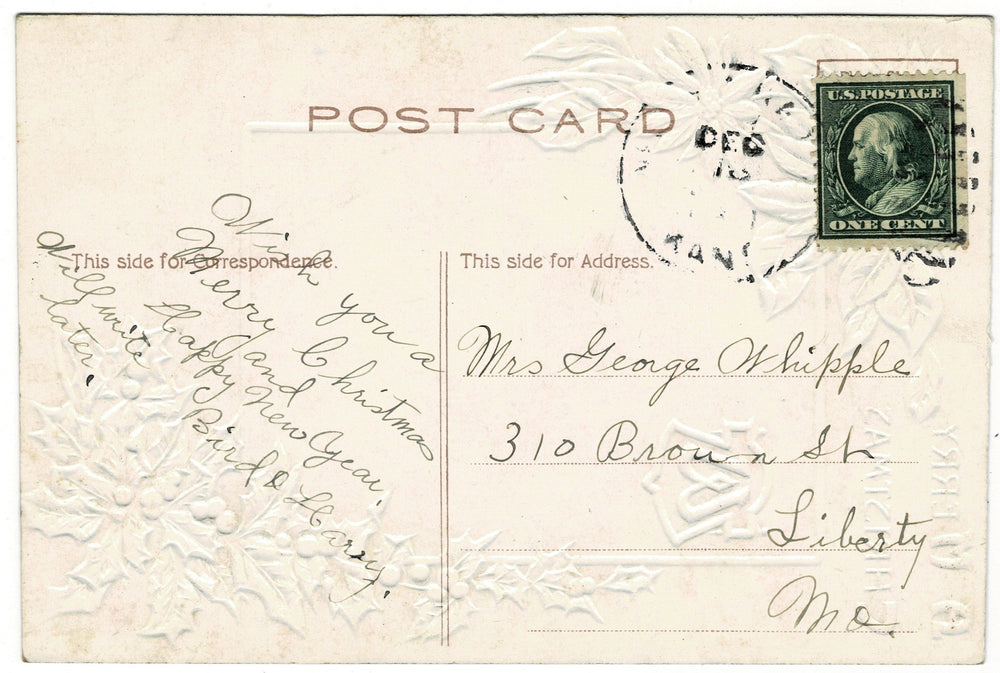 POST CARD
DEC
KANS
U.S.POSTAGE
ONE CENT
This side for Correspondence.
This side for Address.
Wish you a
Merry Christmas
and
Happy New Year.
Bird & Harry.
Will write
later.
Mrs George Whipple
310 Brown St
Liberty
Mo.